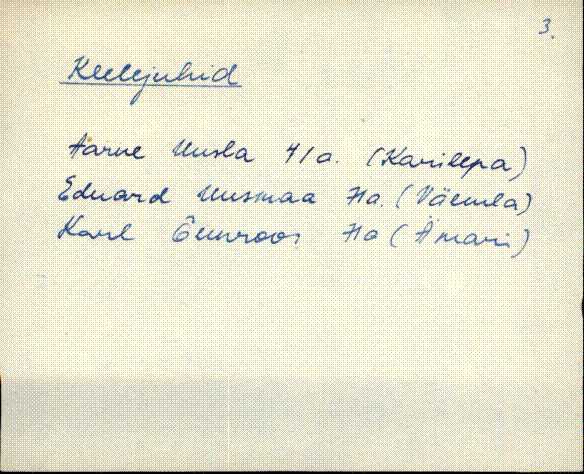 3.
Keelejuhid
Aarne Uusla 41 a. (Karilepa)
Eduard Uusmaa 71 a. (Väemla)
Karl 71 a (Ämari)